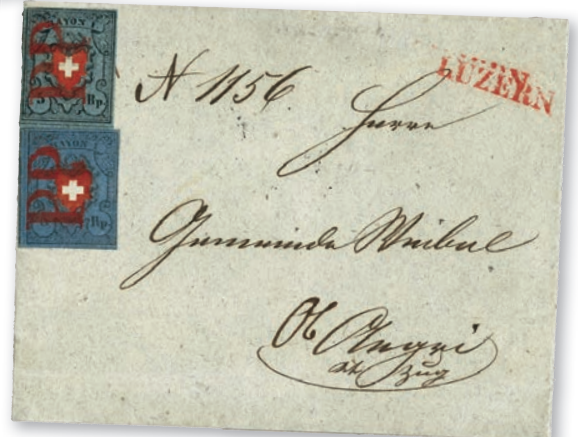 RAYON I
5 Rp.
P.P.
RAYON I
5 Rp.
P.P.
LUZERN
N 1156
Herrn
Gemeinde Weibel
Ob Aegri
Kt Zug